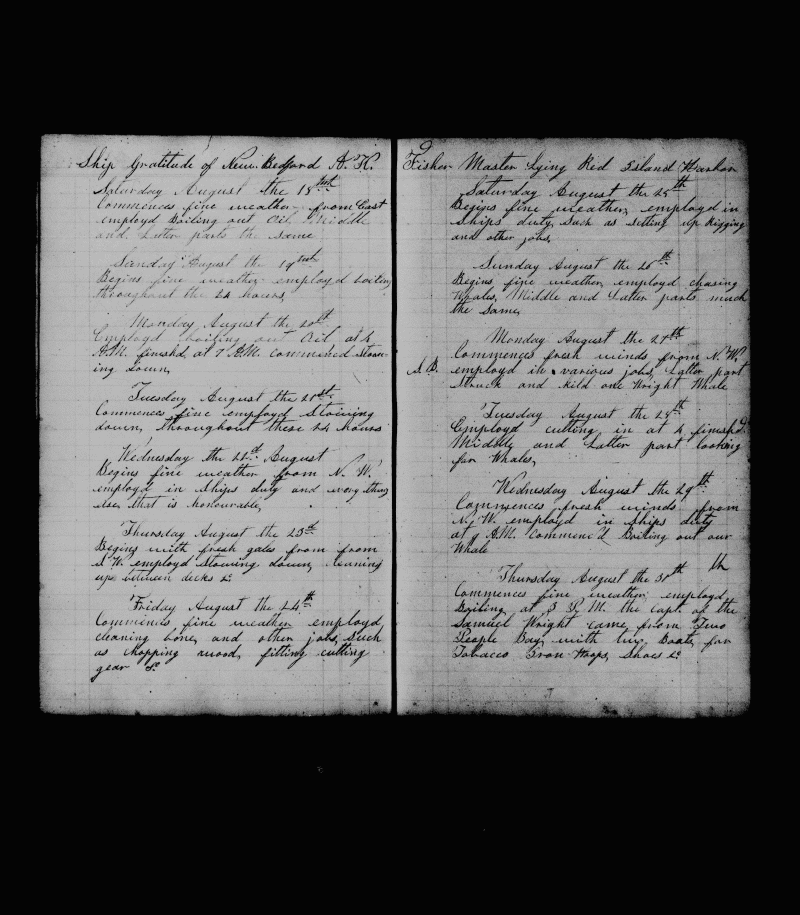 Ship Gratitude of New Bedford A. K.
Saturday August the 18th
Commences fine weather from East
employd Boiling out Oil, Middle
and Latter parts the Same
Sunday August the 19th
Begins fine weather employd boiling
throughout the 24 hours,
Monday August the 20th
Employd boiling out Oil at 4
A.M. finishd, at 7 A.M. commenced Stow-
ing down,
Tuesday August the 21st
Commences fine employd Stowing
down, throughout these 24 hours
Wednesday the 22d August
Begins fine weather from N. W.
employd in Ships duty and every thing
else that is honourable,
Thursday August the 23d
Begins with fresh gales from from
S. W. employd Stowing down, cleaning
up between decks &c
Friday August the 24th
Commences fine weather employd
cleaning bone, and other jobs, Such
as chopping wood, fitting cutting
gear &c
Fisher Master Lying Red Island Harbor
Saturday August the 25th
Begins fine weather, employd in
Ships duty, Such as Setting up Rigging
and other jobs,
Sunday August the 26th
Begins fine weather employd chasing
Whales, Middle and Latter parts much
the Same,
Monday August the 27th
Commences fresh winds from N. W.
employd in various jobs, Latter part
Struck and kild one Wright Whale
Tuesday August the 28th
Employd cutting in at 4 finishd
Middle and Latter part looking
for Whales,
Wednesday August the 29th
Commences fresh winds from
N. W. employd in Ships duty
at A.M. Commenc'd Boiling out our
Whale
Thursday August the 30th
Commences fine weather employd
Boiling at P. M. the Capt. of the
Samuel Wright came from Two
People Bay with two Boats for
Tobacco Iron Hoops, Shoes &c